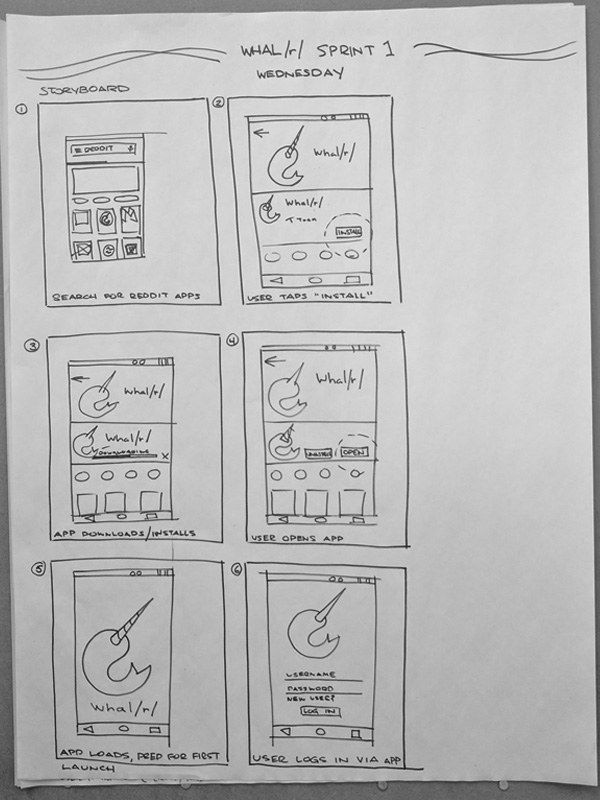 WHAL/r/ SPRINT 1
WEDNESDAY
STORYBOARD
①
≡ REDDIT
SEARCH FOR REDDIT APPS
②
Whal/r/
Whal/r/
INSTALL
USER TAPS "INSTALL"
③
Whal/r/
Whal/r/
DOWNLOADING
X
APP DOWNLOADS/INSTALLS
④
Whal/r/
OPEN
USER OPENS APP
⑤
Whal/r/
APP LOADS, PREP FOR FIRST
LAUNCH
⑥
USERNAME
PASSWORD
NEW USER?
LOG IN
USER LOGS IN VIA APP